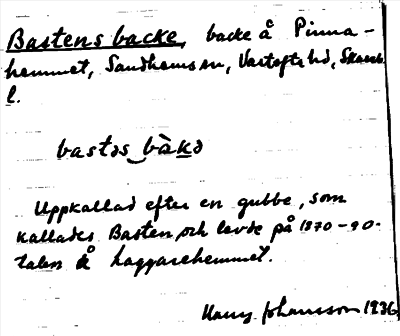 Bastens backe, backe å Pinna-
hemmet, Sandhems sn, Vartofta hd, Skarab.
l.
bastəs bàkə
Uppkallad efter en gubbe, som
kallades Basten och levde på 1870-90-
talen å haggarehemmet.
Harry Johansson 1936